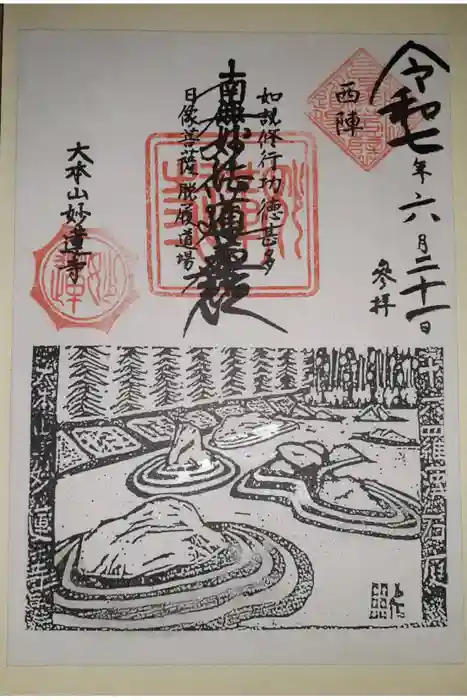 令和七年六月二十一日
參拝
西陣
如説修行功徳甚多
南無妙法蓮華経
日像菩薩腰展道場
大本山妙蓮寺
妙蓮
十六羅漢石庭
大本山妙蓮寺